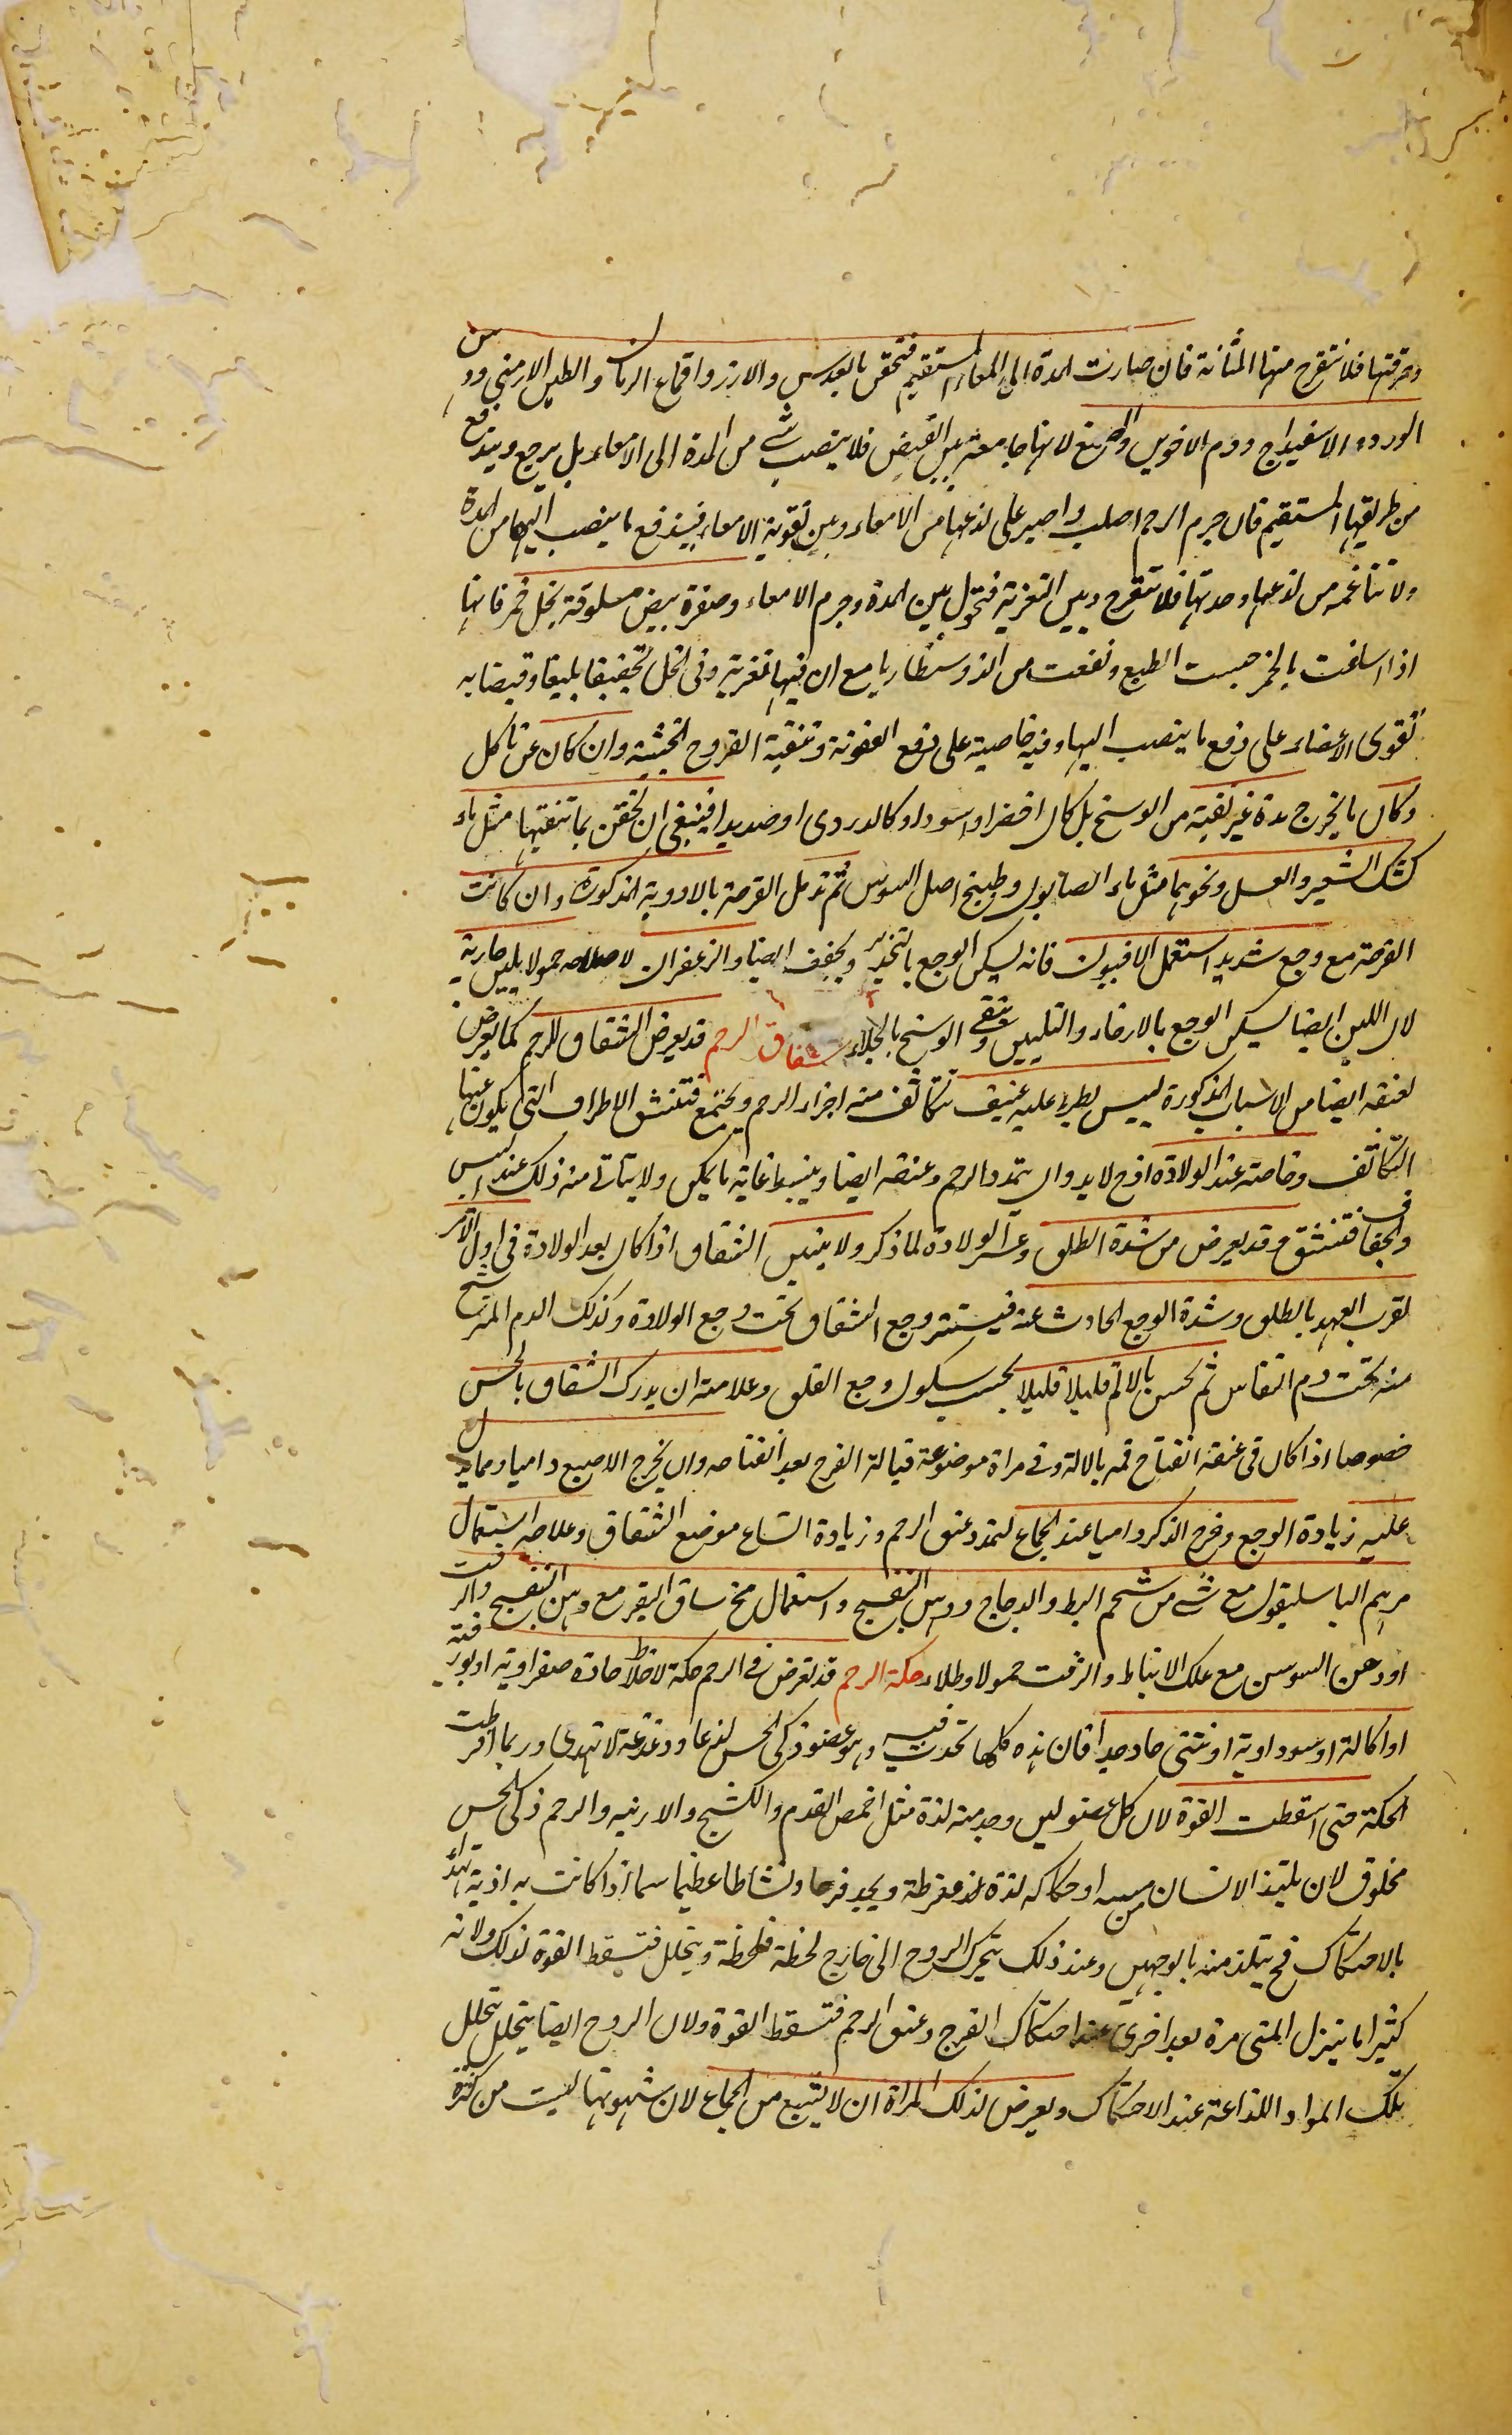 وحرقتها فلا تتقرح منها المثانة فان صارت المدة الى المعاء المستقيم فتحقن بالعدس والارز واقماع الرمان والطين الارمنى ودهن
الورد والاسفيداج ودم الاخوين والصمغ لانها جامعة بين القبض فلا ينصب شئ من المدة الى الامعاء بل يرجع ويندفع
من طريقها المستقيم فان جرم الرحم اصلب واصبر على لذعها من الامعاء وبين تقوية الامعاء فيندفع ما ينصب اليها من المدة
ولا تتاغمه من لذعها وحدتها فلا تتقرح وبين التغرية فتحول بين المدة وجرم الامعاء وصفرة بيض مسلوقة بخل خمر فانها
اذا سلقت بالخمر حبست الطبع ونفعت من الذوسنطاريا مع ان فيها تغرية وفى الخل تجفيفا بليغا وقبضا به
تقوى الاعضاء على دفع ما ينصب اليها وفيه خاصية على دفع العفونة وتنقية القروح الخبيثة وان كان عن تاكل
وكان ما يخرج مدة غير نقية من الوسخ بل كان اخضر او اسود او كالدردى او صديدا فينبغى ان تحقن بما تنقيها مثل ماء
كشك الشعير والعسل ونحوهما مثل ماء الصابون وطبيخ اصل السوس ثم تدمل القرحة بالادوية المذكورة وان كانت
القرحة مع وجع شديد استعمل الافيون فانه يسكن الوجع بالتخدير ويجفف ايضا والزعفران لاصلاحه حمولا بلبن جارية
لان اللبن ايضا يسكن الوجع بالارخاء والتليين وينقى الوسخ بالجلاء شقاق الرحم قد يعرض الشقاق للرحم كما يعرض
لعنقه ايضا من الاسباب المذكورة ليبس يطرء عليه عنيف تتكاثف منه اجزاء الرحم ويجتمع فتنشق الاطراف التى يكون عنها
التكاثف وخاصة عند الولادة اذ ح لا بد وان يتمدد الرحم وعنقه ايضا وينبسط غاية ما يمكن ولا يتاتى منه ذلك عند اليبس
والجفاف فتنشق وقد يعرض من شدة الطلق وعسر الولادة لما ذكر ولا يتبين الشقاق اذا كان بعد الولادة فى اول الامر
لقرب العهد بالطلق وشدة الوجع الحادث عنه فيستتر وجع الشقاق تحت وجع الولادة وكذلك الدم المترشح
منه تحت دم النفاس ثم تحس بالالم قليلا قليلا بحسب سكون وجع الطلق وعلامته ان يدرك الشقاق بالحس
خصوصا اذا كان فى عنقه انفتاح فمه بالالة وفى مراة موضوعة قبالة الفرج بعد انفتاحه وان يخرج الاصبع داميا ومما يدل
عليه زيادة الوجع وخرج الذكر داميا عند الجماع لتمدد عنق الرحم وزيادة اتساع موضع الشقاق وعلاجه استعمال
مرهم الباسليقون مع شئ من شحم البط والدجاج ودهن البنفسج واستعمال مخ ساق البقر مع دهن البنفسج والزفت
او دهن السوسن مع علك الانباط والزفت حمولا وطلاء حكة الرحم قد تعرض فى الرحم حكة لاخلاط حادة صفراوية او بورقية
او اكالة او سوداوية او منى حاد جدا فان هذه كلها تحدث فيه وهو عضو ذكى الحس لذعا ودغدغة لا تهدى وربما افرطت
الحكة حتى اسقطت القوة لان كل عضو لين وجد منه لذة مثل اخمص القدم والكشح والاربية والرحم ذكى الحس
مخلوق لان يلتذ الانسان من مسه او حكاكه لذة مفرطة ويجد فرحا ونشاطا عظيما سما اذا كانت به اذية تهدأ
بالاحتكاك فح يتلذ منه بالوجهين وعند ذلك يتحرك الروح الى خارج لحظة فلحظة ويتحلل فتسقط القوة لذلك ولانه
كثيرا ما ينزل المنى مرة بعد اخرى عند احتكاك الفرج وعنق الرحم فتسقط القوة ولان الروح ايضا يتحلل بتحلل
تلك المواد اللذاعة عند الاحتكاك ويعرض لذلك المراة ان لا تشبع من الجماع لان شهوتها ليست من كثرة